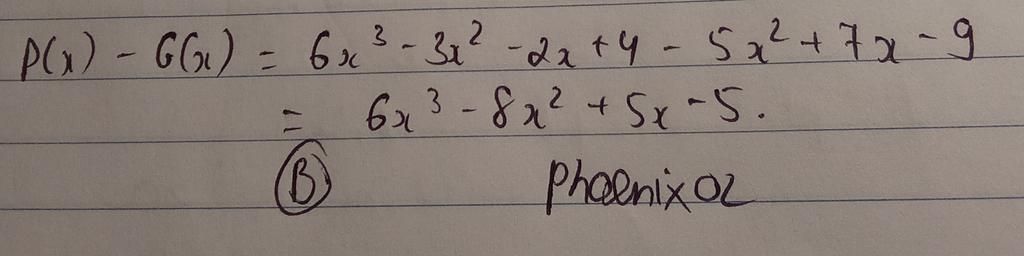 P(x) - G(x) = 6x³ - 3x² - 2x + 4 - 5x² + 7x - 9
= 6x³ - 8x² + 5x - 5.
B phoenix02